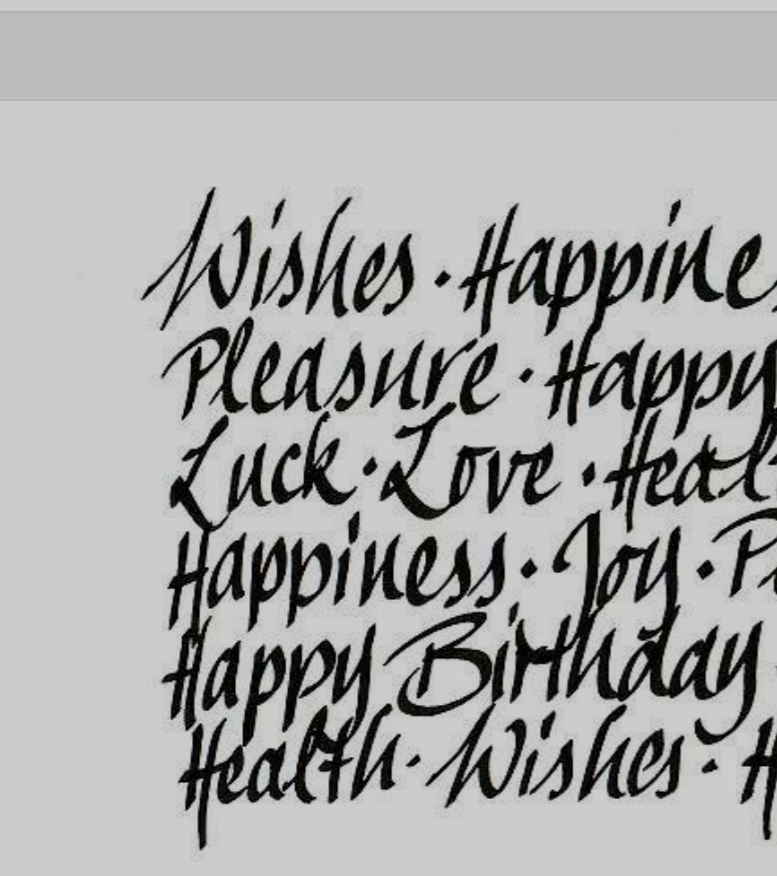 Wishes · Happine
Pleasure · Happy
Luck · Love · Healt
Happiness · Joy · P
Happy Birthday
Health · Wishes · H